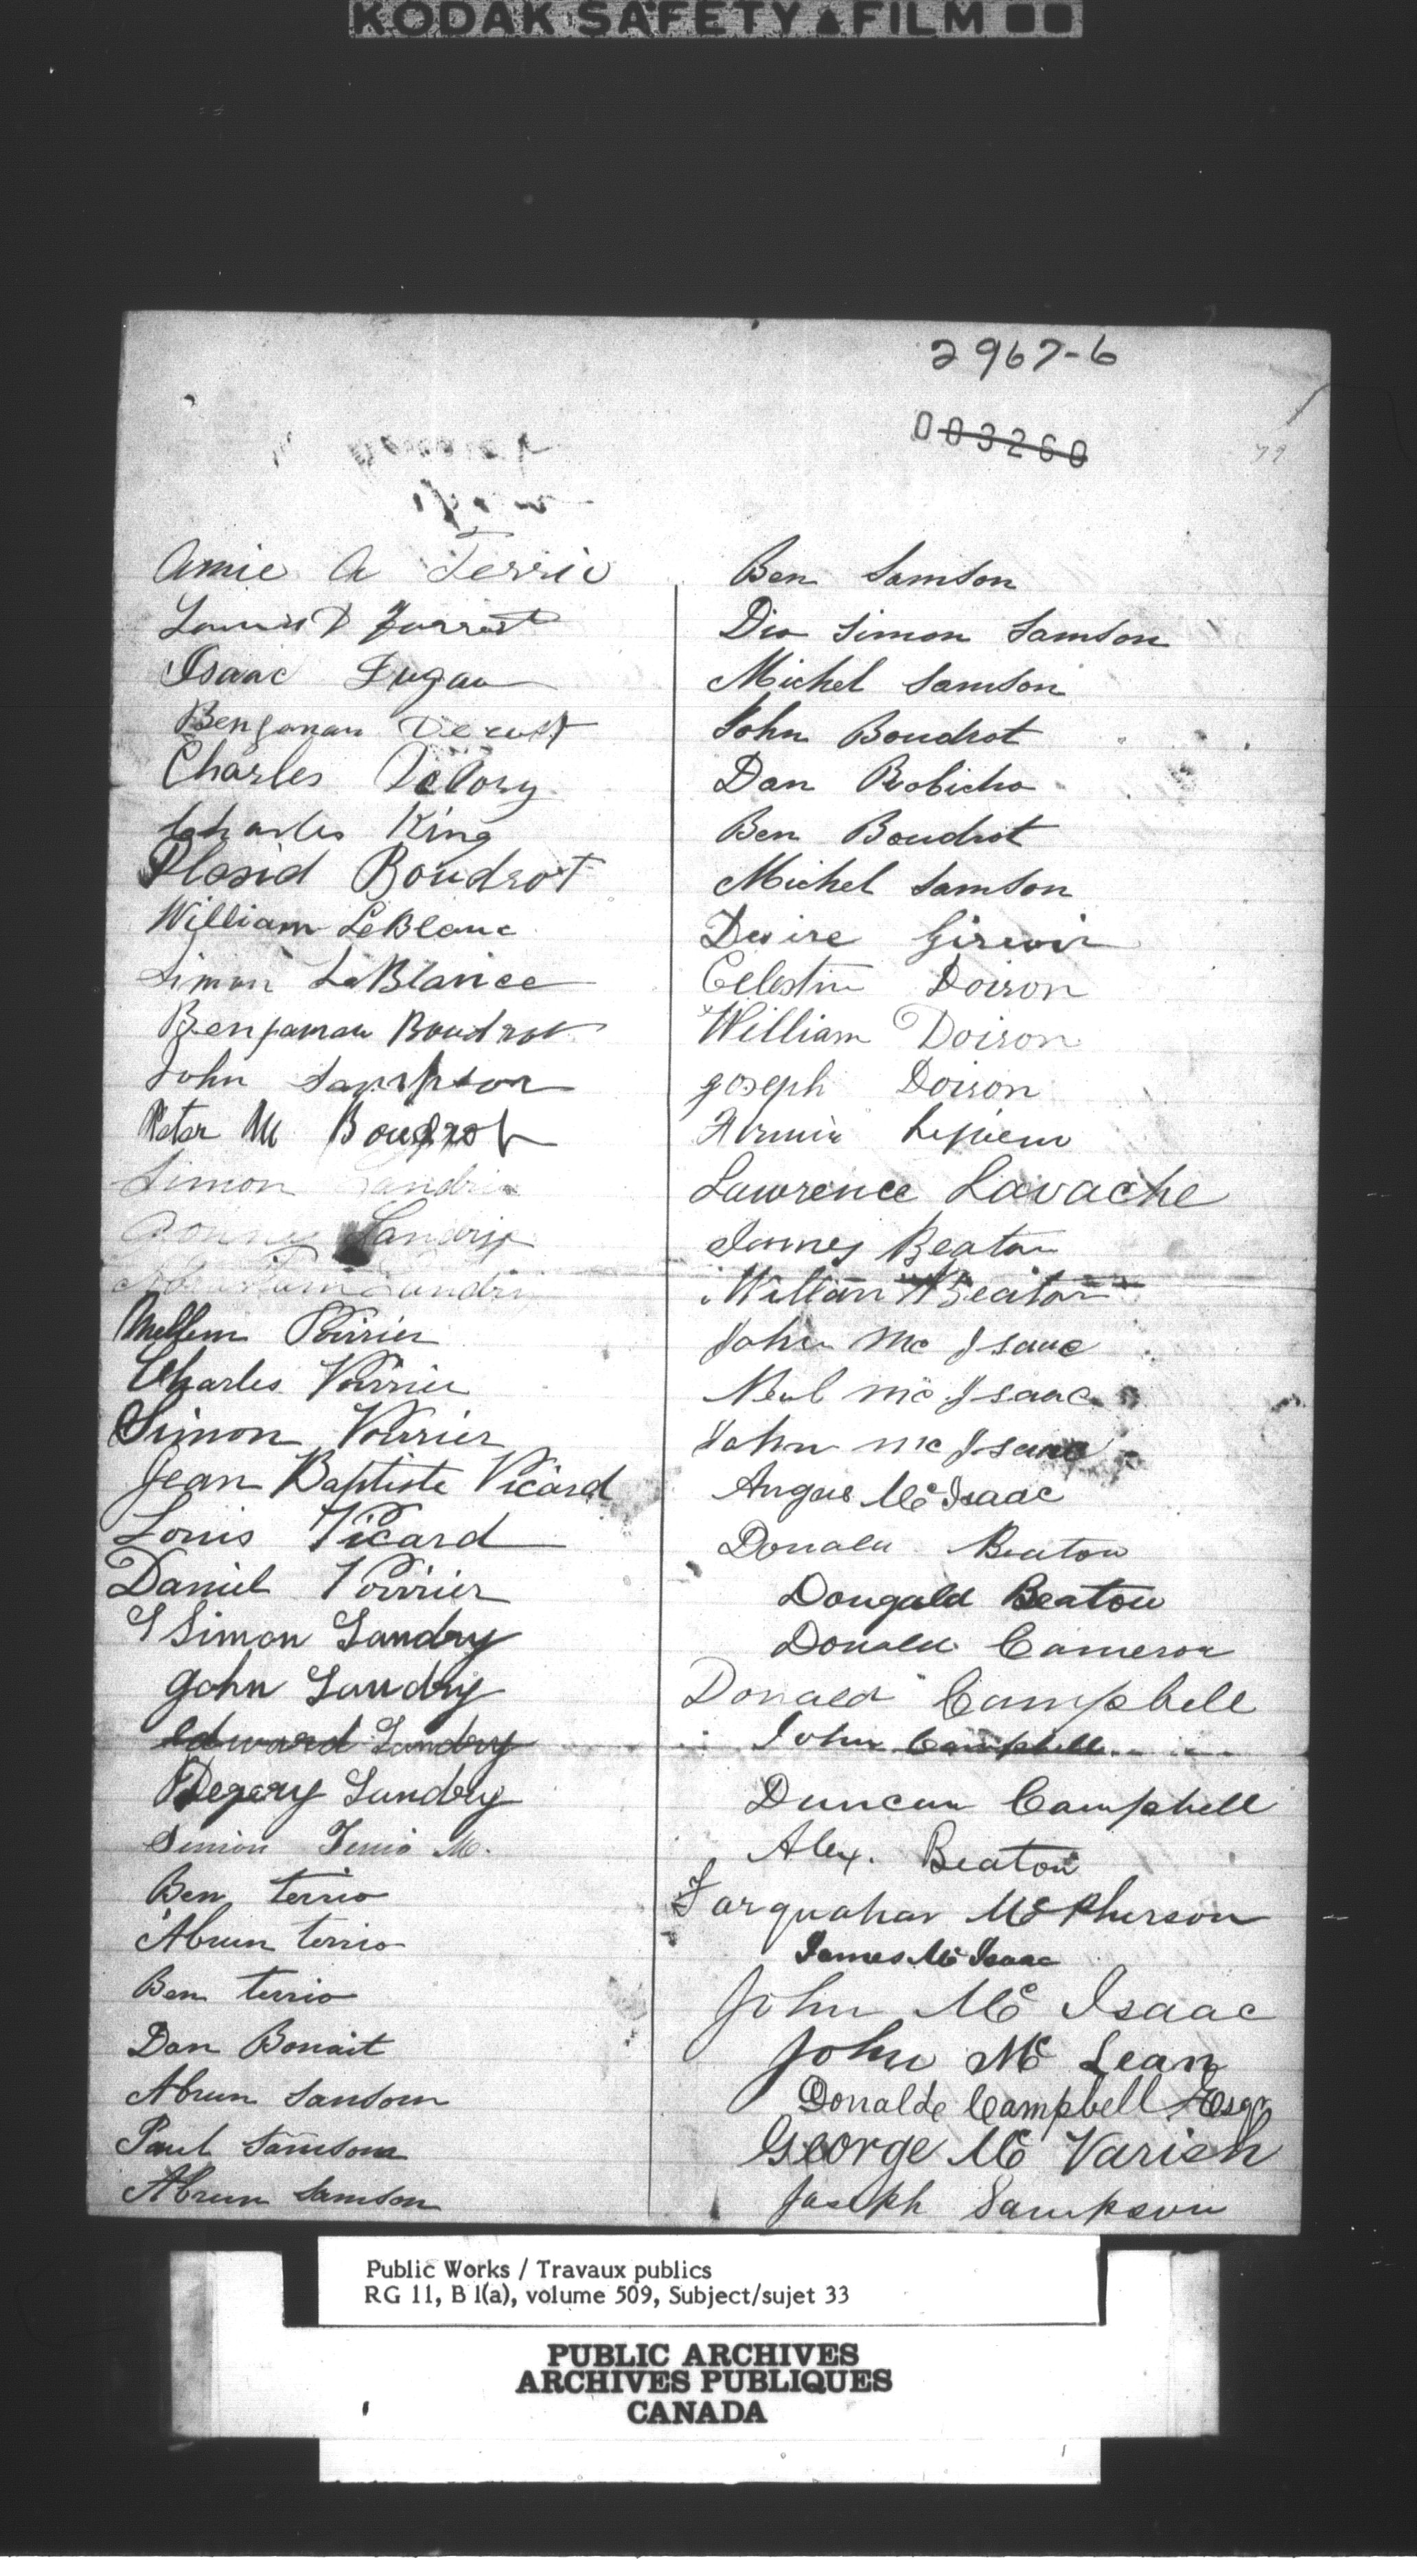 KODAK SAFETY FILM
2967-6
003260
79
Amie A Terrio
D Forrest
Isaac Dugau
Benjaman
Charles Delory
Charles King
Plasid Boudrot
William LeBlanc
Simon LeBlance
Benjaman Boudrot
John Sampson
Peter M Boudrot
Simon Landrie
Landry
Landry
Poirier
Charles Poirier
Simon Poirier
Jean Baptiste Picard
Louis Picard
Daniel Poirier
S Simon Landry
John Landry
Edward Landry
Landry
Simon Terrio M.
Ben terrio
Abrum terrio
Ben terrio
Dan Bonait
Abrum Samson
Paul Samson
Abrum Samson
Ben Samson
Dio Simon Samson
Michel Samson
John Boudrot
Dan Robicho
Ben Boudrot
Michel Samson
Desire Girroir
Celestin Doiron
William Doiron
Joseph Doiron
Firmin
Lawrence Lavache
James Beaton
William Beaton
John Mc Isaac
Neil Mc Isaac
John Mc Isaac
Angus McIsaac
Donald Beaton
Dougald Beaton
Donald Cameron
Donald Campbell
John Campbell
Duncan Campbell
Alex. Beaton
Farquahar McPherson
James McIsaac
John Mc Isaac
John Mc Lean
Donalde Campbell Esqr
George Mc Varish
Joseph Sampson
Public Works / Travaux publics
RG 11, B 1(a), volume 509, Subject/sujet 33
PUBLIC ARCHIVES
ARCHIVES PUBLIQUES
CANADA